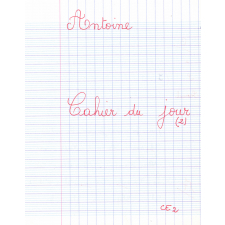 Antoine
Cahier du jour
(2)
CE2